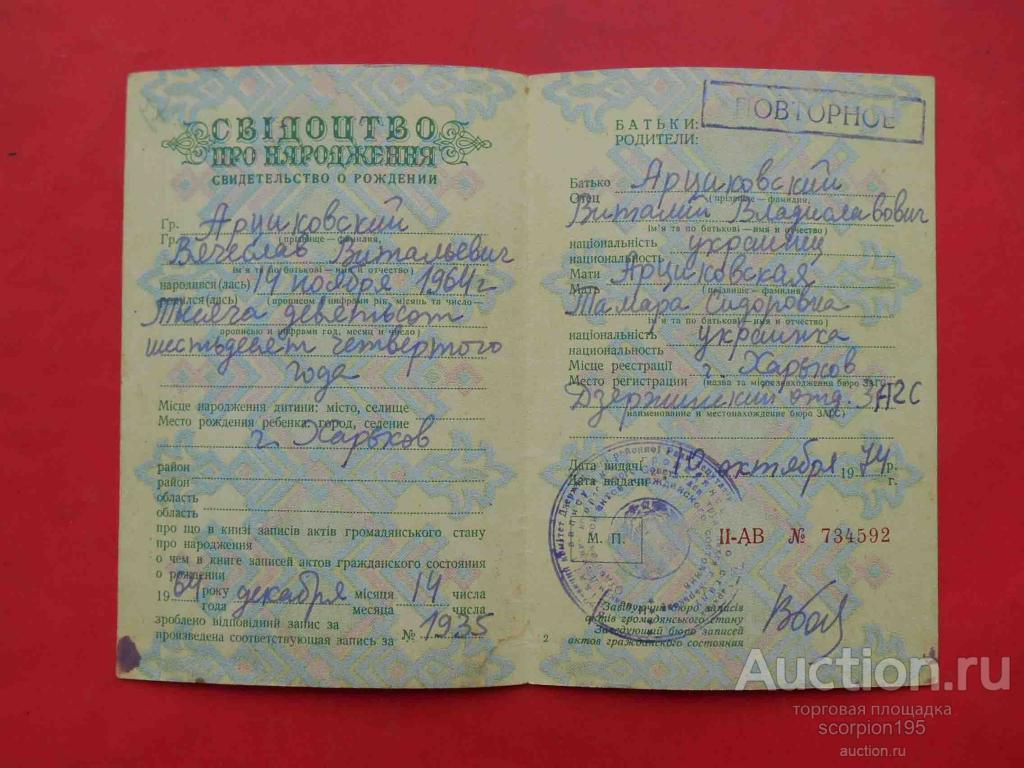 СВІДОЦТВО
ПРО НАРОДЖЕННЯ
СВИДЕТЕЛЬСТВО О РОЖДЕНИИ
Гр. Арциковский
Гр.
(прізвище — фамилия,
Вячеслав Витальевич
ім'я та по батькові — имя и отчество)
народився(лась) 14 ноября 1964 г
родился(лась) (прописом і цифрами рік, місяць та число —
Тысяча девятьсот
прописью и цифрами год, месяц и число)
шестьдесят четвертого
года
Місце народження дитини: місто, селище
Место рождения ребенка: город, селение
г. Харьков
район
район
область
область
про що в книзі записів актів громадянського стану
про народження
о чем в книге записей актов гражданского состояния
о рождении
1964 року декабря місяця 14 числа
года месяца числа
зроблено відповідний запис за
произведена соответствующая запись за № 1935
ПОВТОРНОЕ
БАТЬКИ:
РОДИТЕЛИ:
Батько Арциковский
Отец (прізвище — фамилия,
Виталий Владиславович
ім'я та по батькові — имя и отчество)
національність украинец
национальность
Мати Арциковская
Мать (прізвище — фамилия,
Тамара Сидоровна
ім'я та по батькові — имя и отчество)
національність украинка
национальность
Місце реєстрації г. Харьков
Место регистрации (назва та місцезнаходження бюро ЗАГС
Дзержинский отд. ЗАГС
наименование и местонахождение бюро ЗАГС)
Дата видачі 10 октября 1974 р.
Дата выдачи г.
М. П.
II-АВ № 734592
Завідуючий бюро записів
актів громадянського стану
Заведующий бюро записей
актов гражданского состояния
2
Auction.ru
торговая площадка
scorpion195
auction.ru